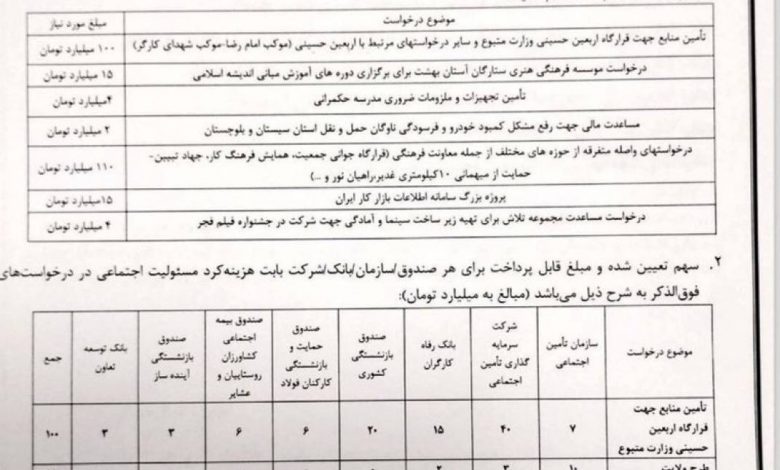 موضوع درخواست	مبلغ مورد نیاز
تأمین منابع جهت قرارگاه اربعین حسینی وزارت متبوع و سایر درخواستهای مرتبط با اربعین حسینی (موکب امام رضا-موکب شهدای کارگر)	۱۰۰ میلیارد تومان
درخواست موسسه فرهنگی هنری ستارگان آستان بهشت برای برگزاری دوره های آموزش مبانی اندیشه اسلامی	۱۵ میلیارد تومان
تأمین تجهیزات و ملزومات ضروری مدرسه حکمرانی	۴میلیارد تومان
مساعدت مالی جهت رفع مشکل کمبود خودرو و فرسودگی ناوگان حمل و نقل استان سیستان و بلوچستان	۲ میلیارد تومان
درخواستهای واصله متفرقه از حوزه های مختلف از جمله معاونت فرهنگی (قرارگاه جوانی جمعیت، همایش فرهنگ کار، جهاد تبیین-	۱۱۰ میلیارد تومان
حمایت از میهمانی ۱۰کیلومتری غدیر،راهیان نور و ...)
پروژه بزرگ سامانه اطلاعات بازار کار ایران	۱۵میلیارد تومان
درخواست مساعدت مجموعه تلاش برای تهیه زیر ساخت سینما و آمادگی جهت شرکت در جشنواره فیلم فجر	۴ میلیارد تومان
۲. سهم تعیین شده و مبلغ قابل پرداخت برای هر صندوق/سازمان/بانک/شرکت بابت هزینه‌کرد مسئولیت اجتماعی در درخواست‌های
فوق‌الذکر به شرح ذیل می‌باشد (مبالغ به میلیارد تومان):
موضوع درخواست	سازمان تأمین اجتماعی	شرکت سرمایه گذاری تأمین اجتماعی	بانک رفاه کارگران	صندوق بازنشستگی کشوری	صندوق حمایت و بازنشستگی کارکنان فولاد	صندوق بیمه اجتماعی کشاورزان روستاییان و عشایر	صندوق بازنشستگی آینده ساز	بانک توسعه تعاون	جمع
تأمین منابع جهت قرارگاه اربعین حسینی وزارت متبوع	۷	۴۰	۱۵	۲۰	۶	۶	۳	۳	۱۰۰
طرح ولایت	۱۰	۳	۲